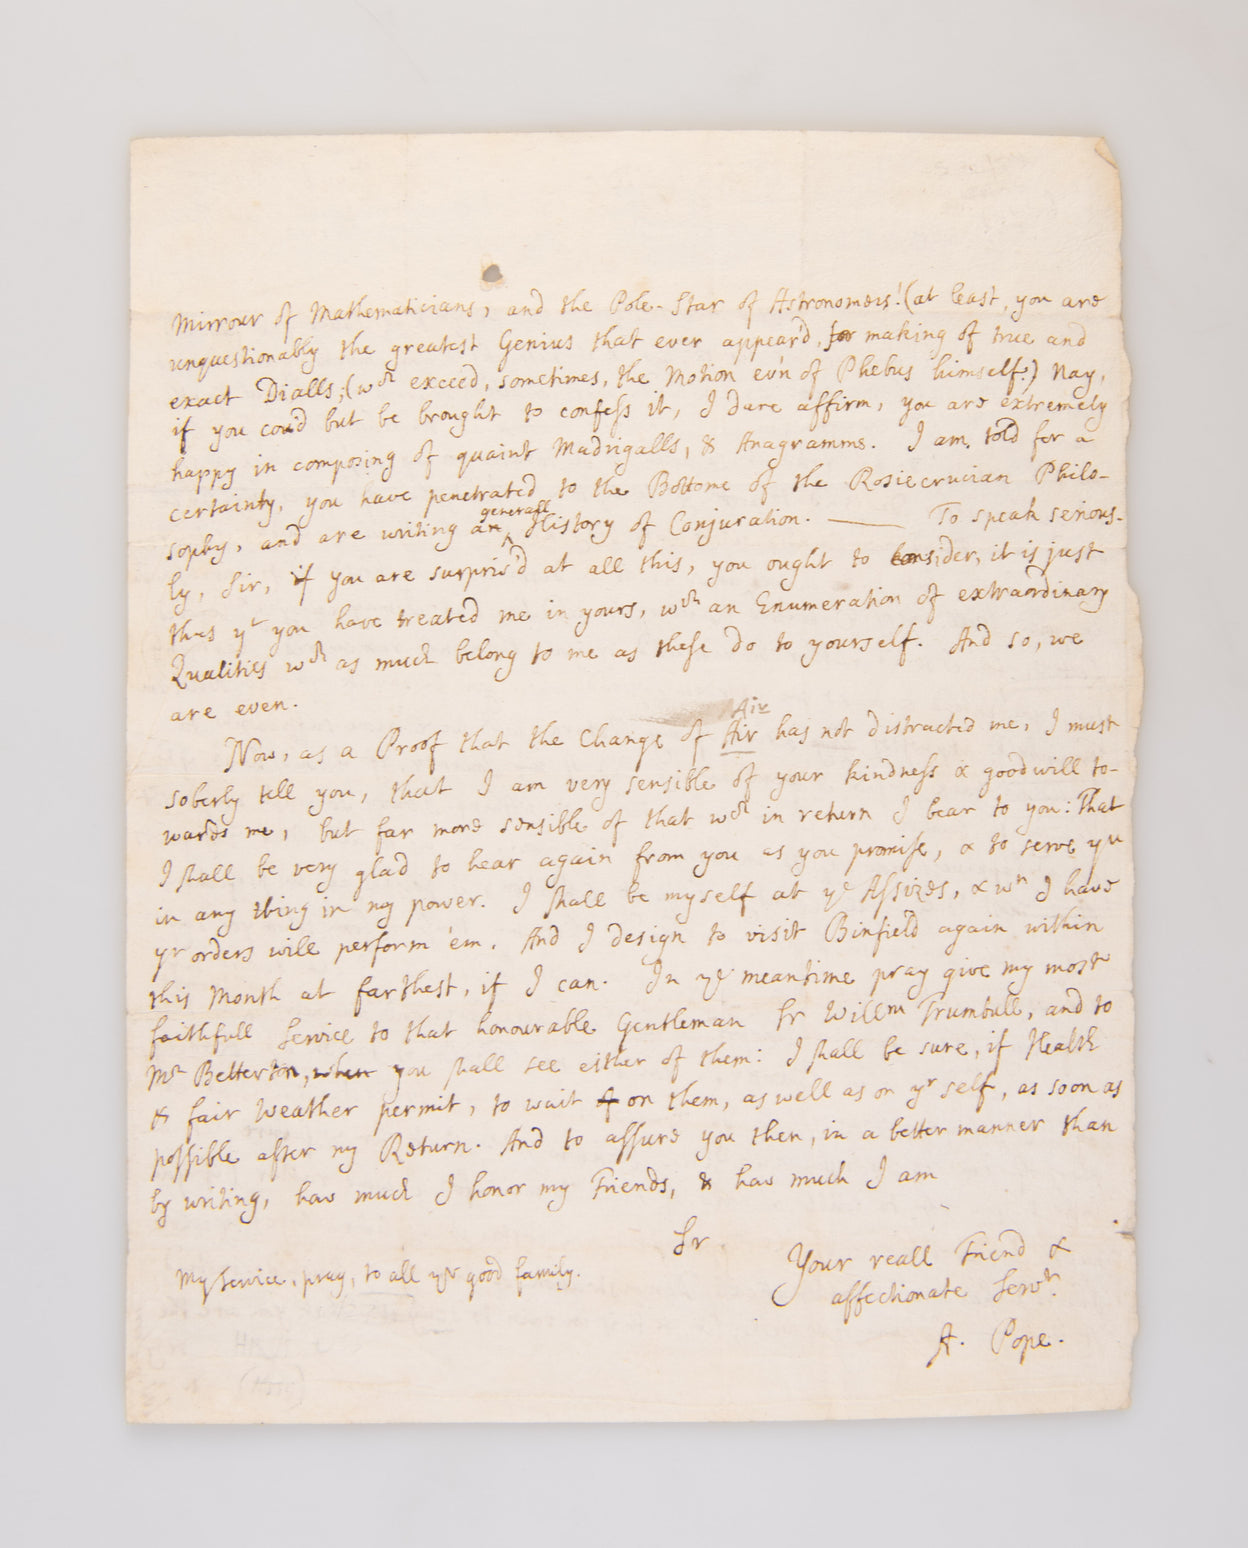 Mirrour of Mathematicians, and the Pole-Star of Astronomers! (at least, you are
unquestionably the greatest Genius that ever appear'd, for making of true and
exact Dialls; (wch exceed, sometimes, the Motion ev'n of Phebus himself.) Nay,
if you cou'd but be brought to confess it, I dare affirm, you are extremely
happy in composing of quaint Madrigalls, & Anagramms. I am told for a
certainty, you have penetrated to the Bottome of the Rosiecrucian Philo-
sophy, and are writing an generall History of Conjuration. —— To speak serious-
ly, Sir, if you are surpris'd at all this, you ought to consider, it is just
thus yt you have treated me in yours, wth an Enumeration of extraordinary
Qualities wch as much belong to me as these do to yourself. And so, we
are even.
Air
Now, as a Proof that the Change of Air has not distracted me, I must
soberly tell you, that I am very sensible of your kindness & goodwill to-
wards me, but far more sensible of that wch in return I bear to you: That
I shall be very glad to hear again from you as you promise, & to serve yu
in any thing in my power. I shall be myself at ye Assizes, & wn I have
yr orders will perform 'em. And I design to visit Binfield again within
this Month at farthest, if I can. In ye meantime pray give my most
faithfull Service to that honourable Gentleman Sr Willm Trumbull, and to
Mr Betterton, when you shall see either of them: I shall be sure, if Health
& fair Weather permit, to wait on them, as well as on yr self, as soon as
possible after my Return. And to assure you then, in a better manner than
by writing, how much I honor my Friends, & how much I am
Sr
Your reall Friend &
My Service, pray, to all yr good family.
affectionate Servt.
A. Pope.